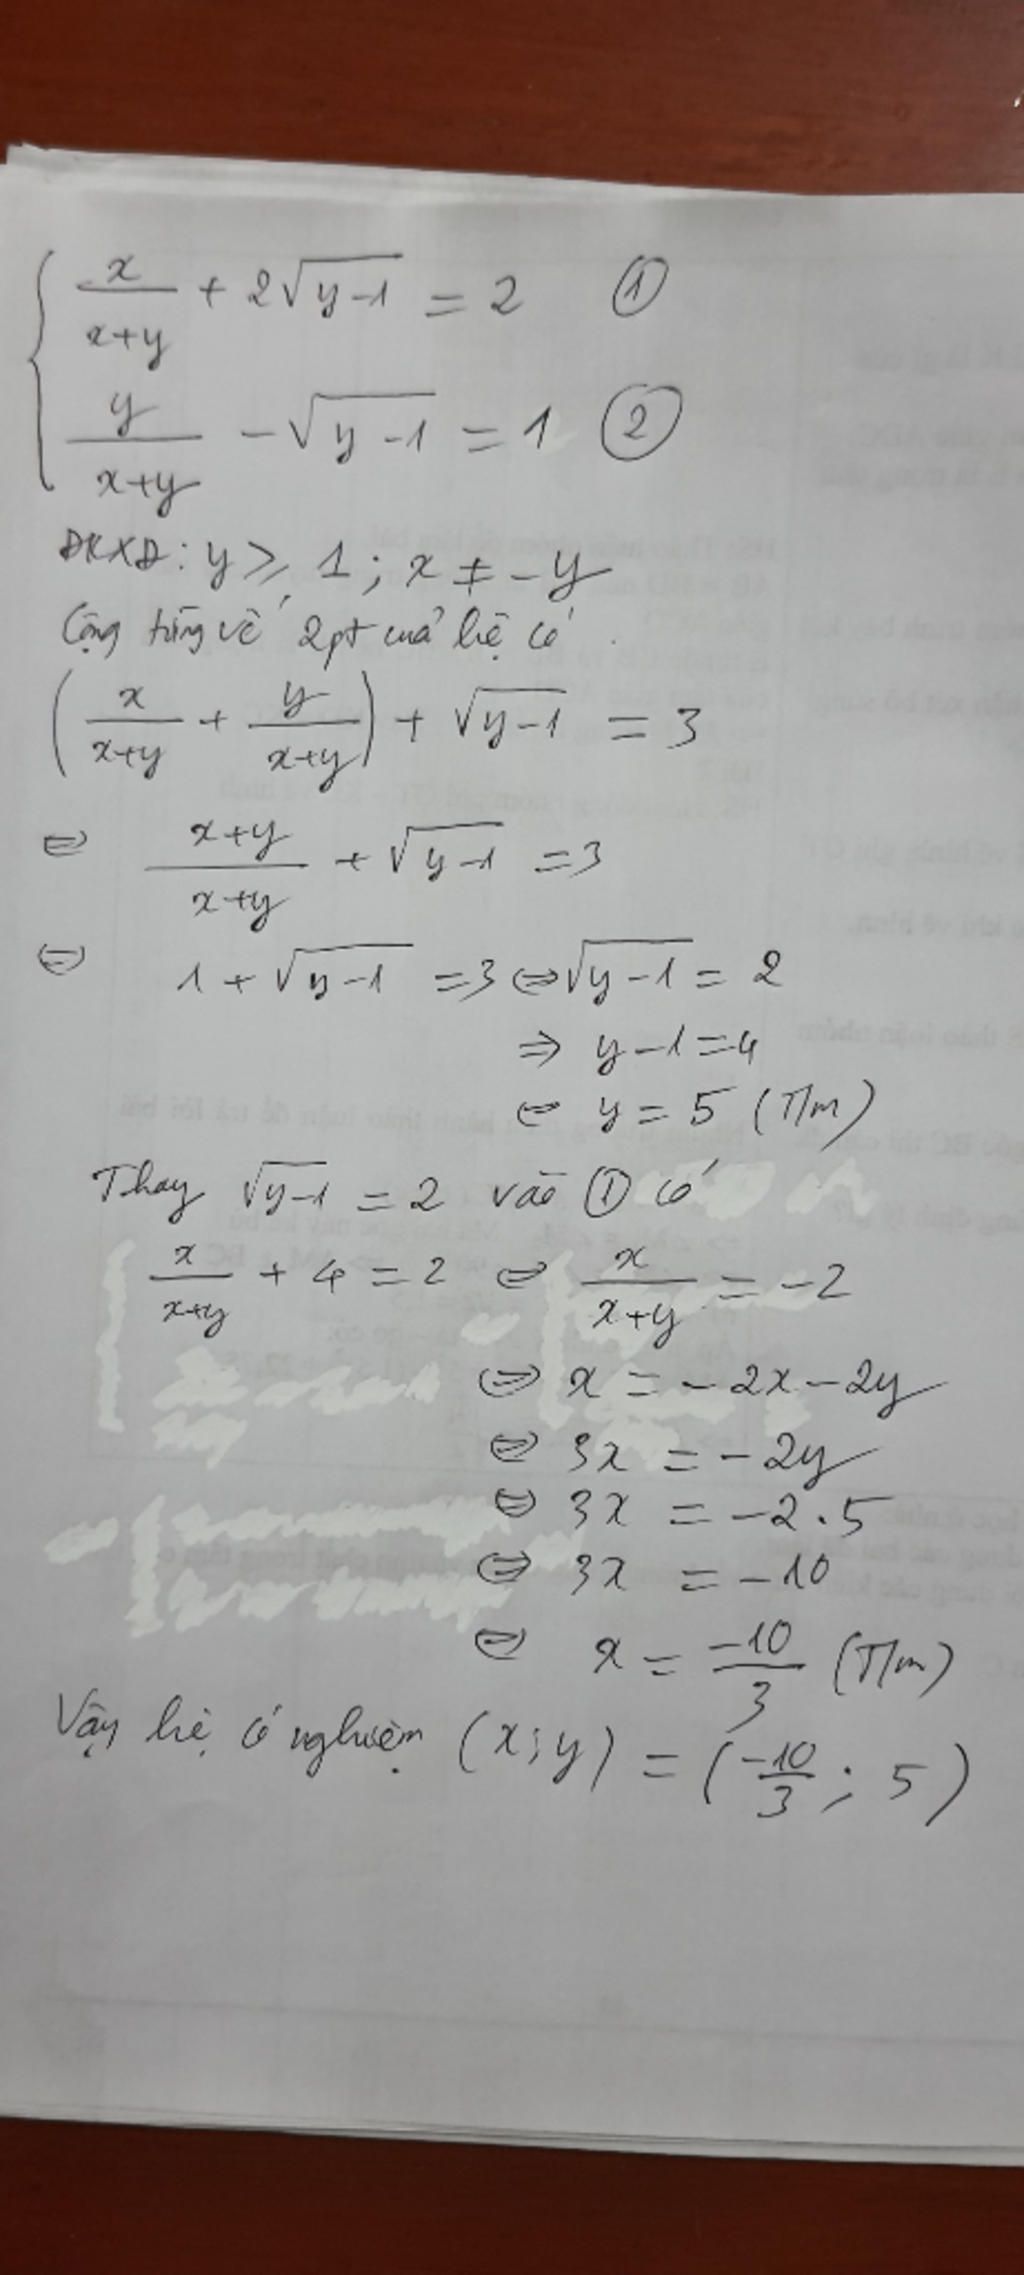 x/(x+y) + 2√(y-1) = 2 ①
y/(x+y) - √(y-1) = 1 ②
ĐKXĐ: y ≥ 1 ; x ≠ -y
Cộng từng vế 2pt của hệ có
(x/(x+y) + y/(x+y)) + √(y-1) = 3
⇔ (x+y)/(x+y) + √(y-1) = 3
⇔ 1 + √(y-1) = 3 ⇔ √(y-1) = 2
⇒ y-1 = 4
⇔ y = 5 (T/m)
Thay √(y-1) = 2 vào ① có
x/(x+y) + 4 = 2 ⇔ x/(x+y) = -2
⇔ x = -2x-2y
⇔ 3x = -2y
⇔ 3x = -2.5
⇔ 3x = -10
⇔ x = -10/3 (T/m)
Vậy hệ có nghiệm (x;y) = (-10/3 ; 5)